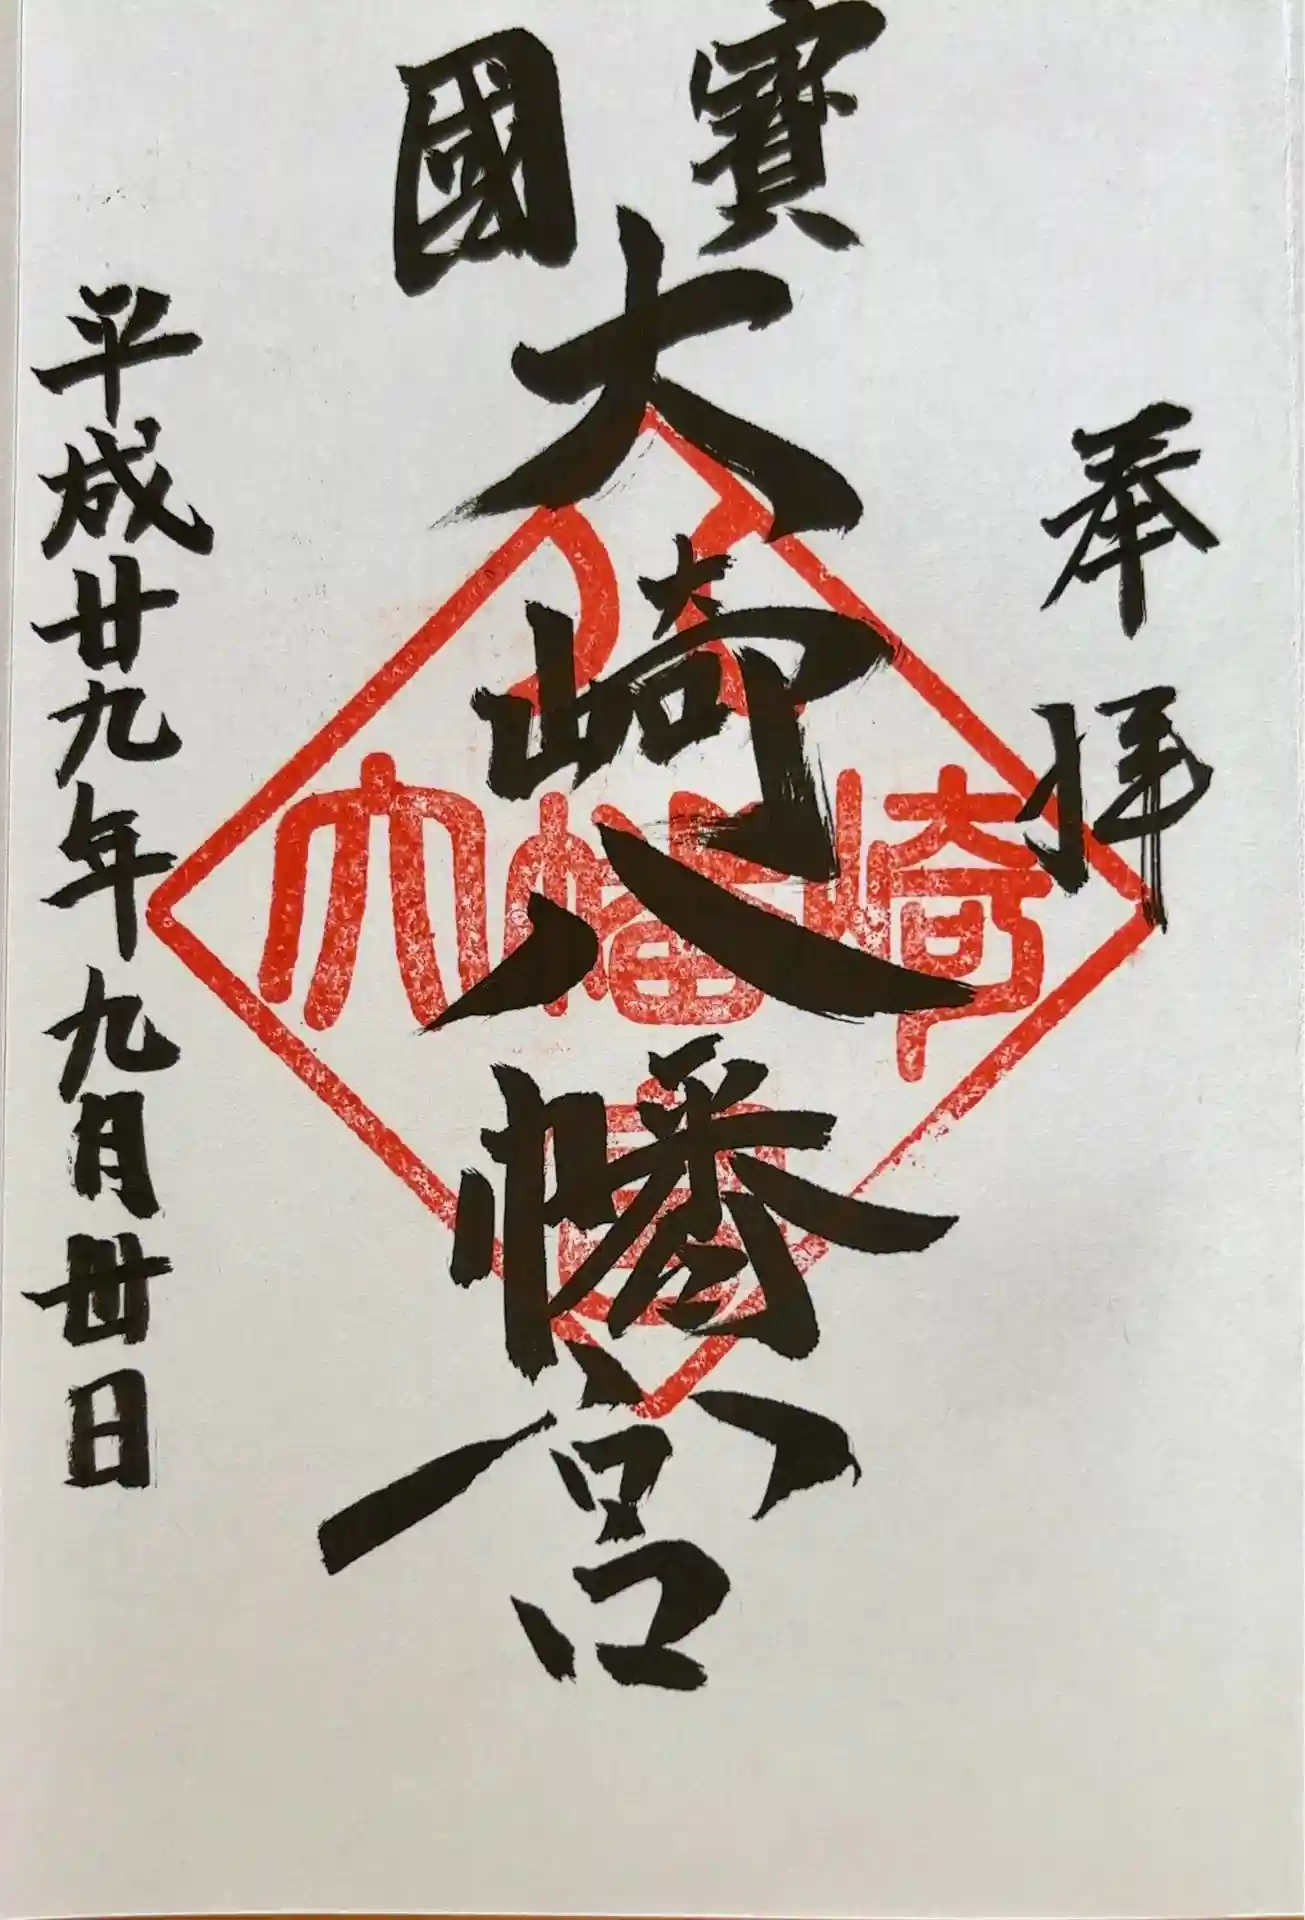 奉拝
寳國
大崎八幡宮
平成廿九年九月丗日
八
大幡崎
宮